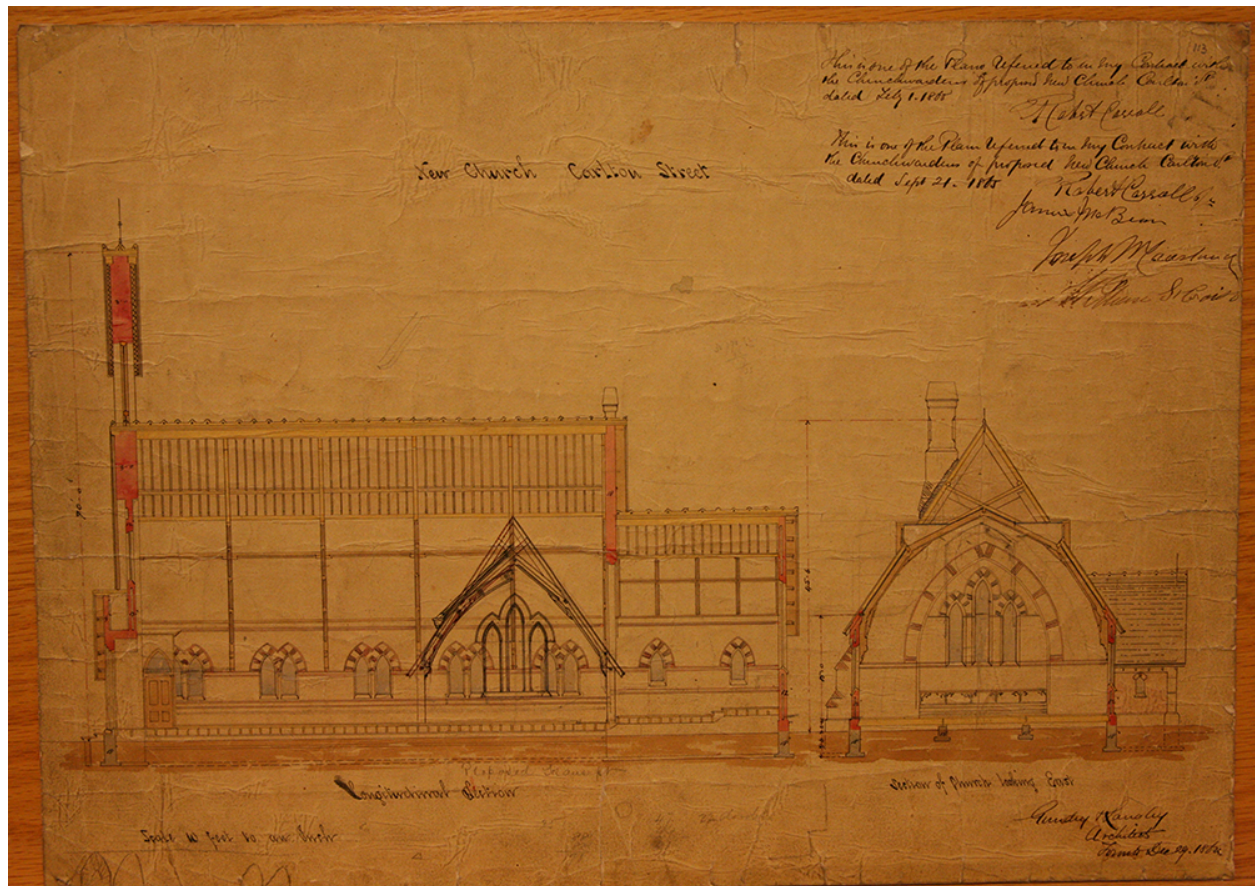 113
This is one of the Plans referred to in my Contract with
the Churchwardens of proposed New Church Carlton St
dated Feby 1. 1865
Robert Carroll
This is one of the Plans referred to in my Contract with
the Churchwardens of proposed New Church Carlton St
dated Sept 21 - 1865
Robert Carroll
James McBean
Joseph
William
New Church Carlton Street
70 . 0
45 . 6
Longitudinal Section
Section of Church looking East
Scale 10 feet to an Inch
Gundry & Langley
Architects
Toronto Dec 29. 186